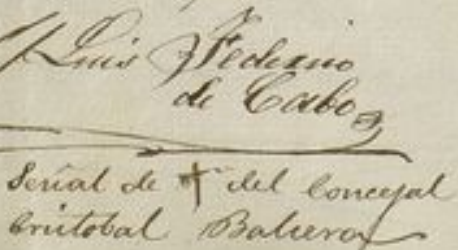 Luis Federico
de Cabo
Señal de † del Concejal
Cristobal Balsera